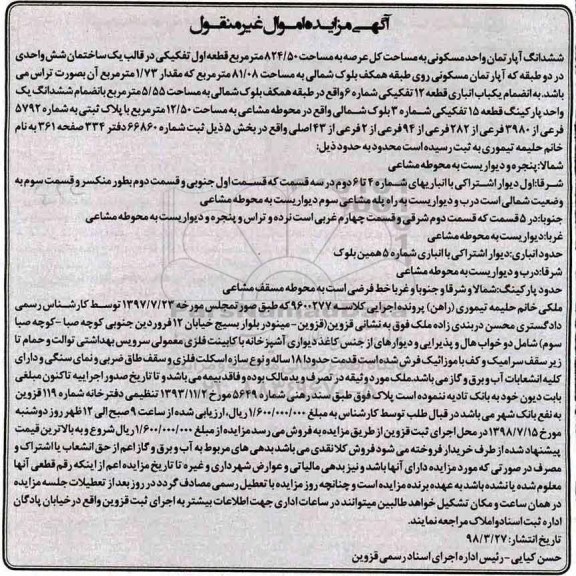 آگهی مزایده اموال غیر منقول
ششدانگ آپارتمان واحد مسکونی به مساحت کل عرصه به مساحت ۸۲۴/۵۰ مترمربع قطعه اول تفکیکی در قالب یک ساختمان شش واحدی
در دو طبقه که آپارتمان مسکونی روی طبقه همکف بلوک شمالی به مساحت ۸۱/۰۸ مترمربع که مقدار ۱/۷۳ مترمربع آن بصورت تراس می
باشد. به انضمام یکباب انباری قطعه ۱۲ تفکیکی شماره ۶ واقع در طبقه همکف بلوک شمالی به مساحت ۵/۵۵ مترمربع بانضمام ششدانگ یک
واحد پارکینگ قطعه ۱۵ تفکیکی شماره ۳ بلوک شمالی واقع در محوطه مشاعی به مساحت ۱۲/۵۰ مترمربع با پلاک ثبتی به شماره ۵۷۹۲
فرعی از ۳۹۸۰ فرعی از ۲۸۲ فرعی از ۹۴ فرعی از ۲ فرعی از ۴۳ اصلی واقع در بخش ۵ ذیل ثبت شماره ۶۶۸۶۰ دفتر ۳۳۴ صفحه ۳۶۱ به نام
خانم حلیمه تیموری به ثبت رسیده است محدود به حدود ذیل:
شمالا: پنجره و دیواریست به محوطه مشاعی
شرقا: اول دیوار اشتراکی با انباریهای شماره ۴ تا ۶ دوم در سه قسمت که قسمت اول جنوبی و قسمت دوم بطور منکسر و قسمت سوم به
وضعیت شمالی است درب و دیواریست به راه پله مشاعی سوم دیواریست به محوطه مشاعی
جنوبا: در ۵ قسمت که قسمت دوم شرقی و قسمت چهارم غربی است نرده و تراس و پنجره و دیواریست به محوطه مشاعی
غربا: دیواریست به محوطه مشاعی
حدود انباری: دیوار اشتراکی با انباری شماره ۵ همین بلوک
شرقا: درب و دیواریست به محوطه مشاعی
حدود پارکینگ: شمالا و شرقا و جنوبا و غربا خط فرضی است به محوطه مسقف مشاعی
ملکی خانم حلیمه تیموری (راهن) پرونده اجرایی کلاسه ۹۶۰۰۲۷۷ که طبق صورتمجلس مورخه ۱۳۹۷/۷/۲۳ توسط کارشناس رسمی
دادگستری محسن دربندی زاده ملک فوق به نشانی قزوین (قزوین - مینودر بلوار بسیج خیابان ۱۲ فروردین جنوبی کوچه صبا - کوچه صبا
سوم) شامل دو خواب هال و پذیرایی و دیوارهای از جنس کاغذ دیواری آشپزخانه با کابینت فلزی معمولی سرویس بهداشتی توالت و حمام تا
زیر سقف سرامیک و کف با موزائیک فرش شده است قدمت حدودا ۱۸ ساله و نوع سازه اسکلت فلزی و سقف طاق ضربی و نمای سنگی و دارای
کلیه انشعابات آب و برق و گاز می باشد. ملک مورد وثیقه در تصرف و ید مالک بوده و فاقد بیمه می باشد و تا تاریخ صدور اجراییه تاکنون مبلغی
بابت دیون خود به بانک تادیه ننموده است پلاک فوق طبق سند رهنی شماره ۵۶۴۹ مورخ ۱۳۹۳/۱۱/۲ تنظیمی دفترخانه شماره ۱۱۹ قزوین
به نفع بانک شهر می باشد در قبال طلب توسط کارشناس به مبلغ ۱/۶۰۰/۰۰۰/۰۰۰ ریال، ارزیابی شده از ساعت ۹ صبح الی ۱۲ ظهر روز دوشنبه
مورخ ۱۳۹۸/۷/۱۵ در محل اجرای ثبت قزوین از طریق مزایده به فروش می رسد مزایده از مبلغ ۱/۶۰۰/۰۰۰/۰۰۰ ریال شروع و به بالاترین قیمت
پیشنهاد شده از طرف خریدار فروخته می شود فروش کلا نقدی می باشد بدهی های مربوط به آب و برق و گاز اعم از حق انشعاب یا اشتراک و
مصرف در صورتی که مورد مزایده دارای آنها باشد و نیز بدهی مالیاتی و عوارض شهرداری و غیره تا تاریخ مزایده اعم از اینکه رقم قطعی آنها
معلوم شده یا نشده باشد به عهده برنده مزایده است و چنانچه روز مزایده با تعطیل رسمی مصادف گردد در روز بعد از تعطیلات جلسه مزایده
در همان ساعت و مکان تشکیل خواهد طالبین میتوانند در ساعات اداری جهت اطلاعات بیشتر به اجرای ثبت قزوین واقع در خیابان پادگان
اداره ثبت اسناد و املاک مراجعه نمایند.
تاریخ انتشار: ۹۸/۳/۲۷
حسن کیایی - رئیس اداره اجرای اسناد رسمی قزوین